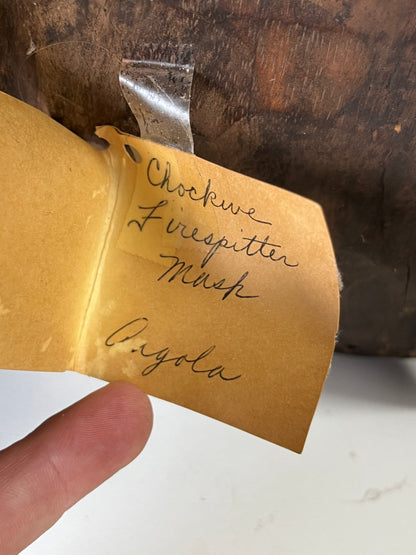 Chockwe
Firespitter
Mask
Angola